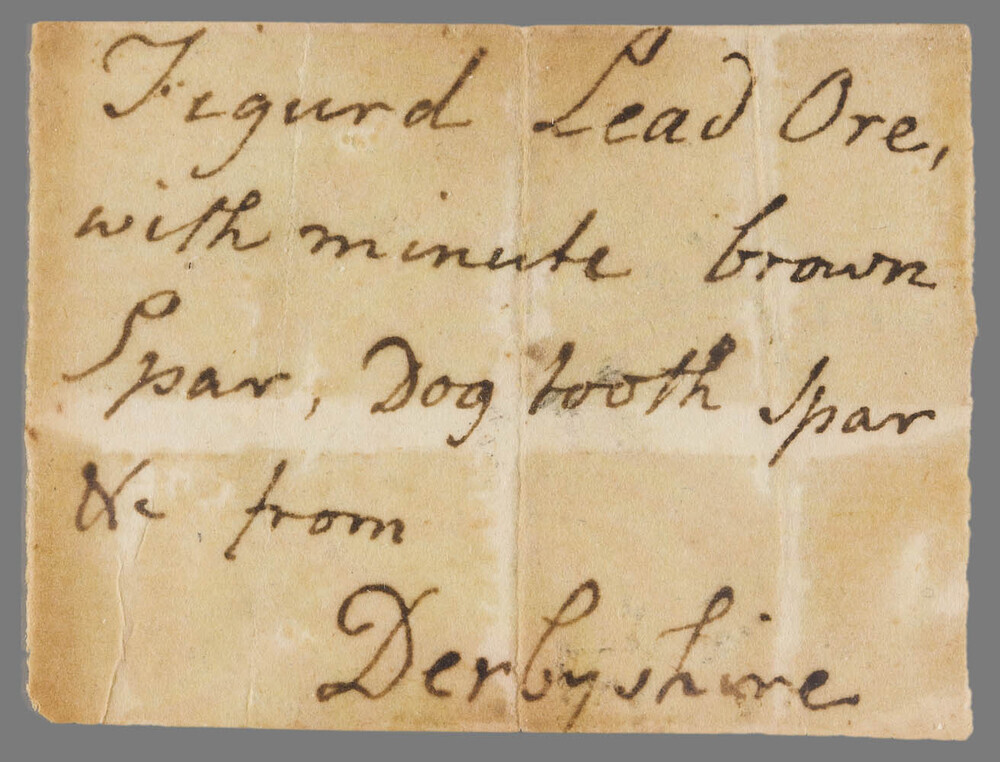 Figurd Lead Ore,
with minute brown
Spar, Dog tooth spar
&c from
Derbyshire